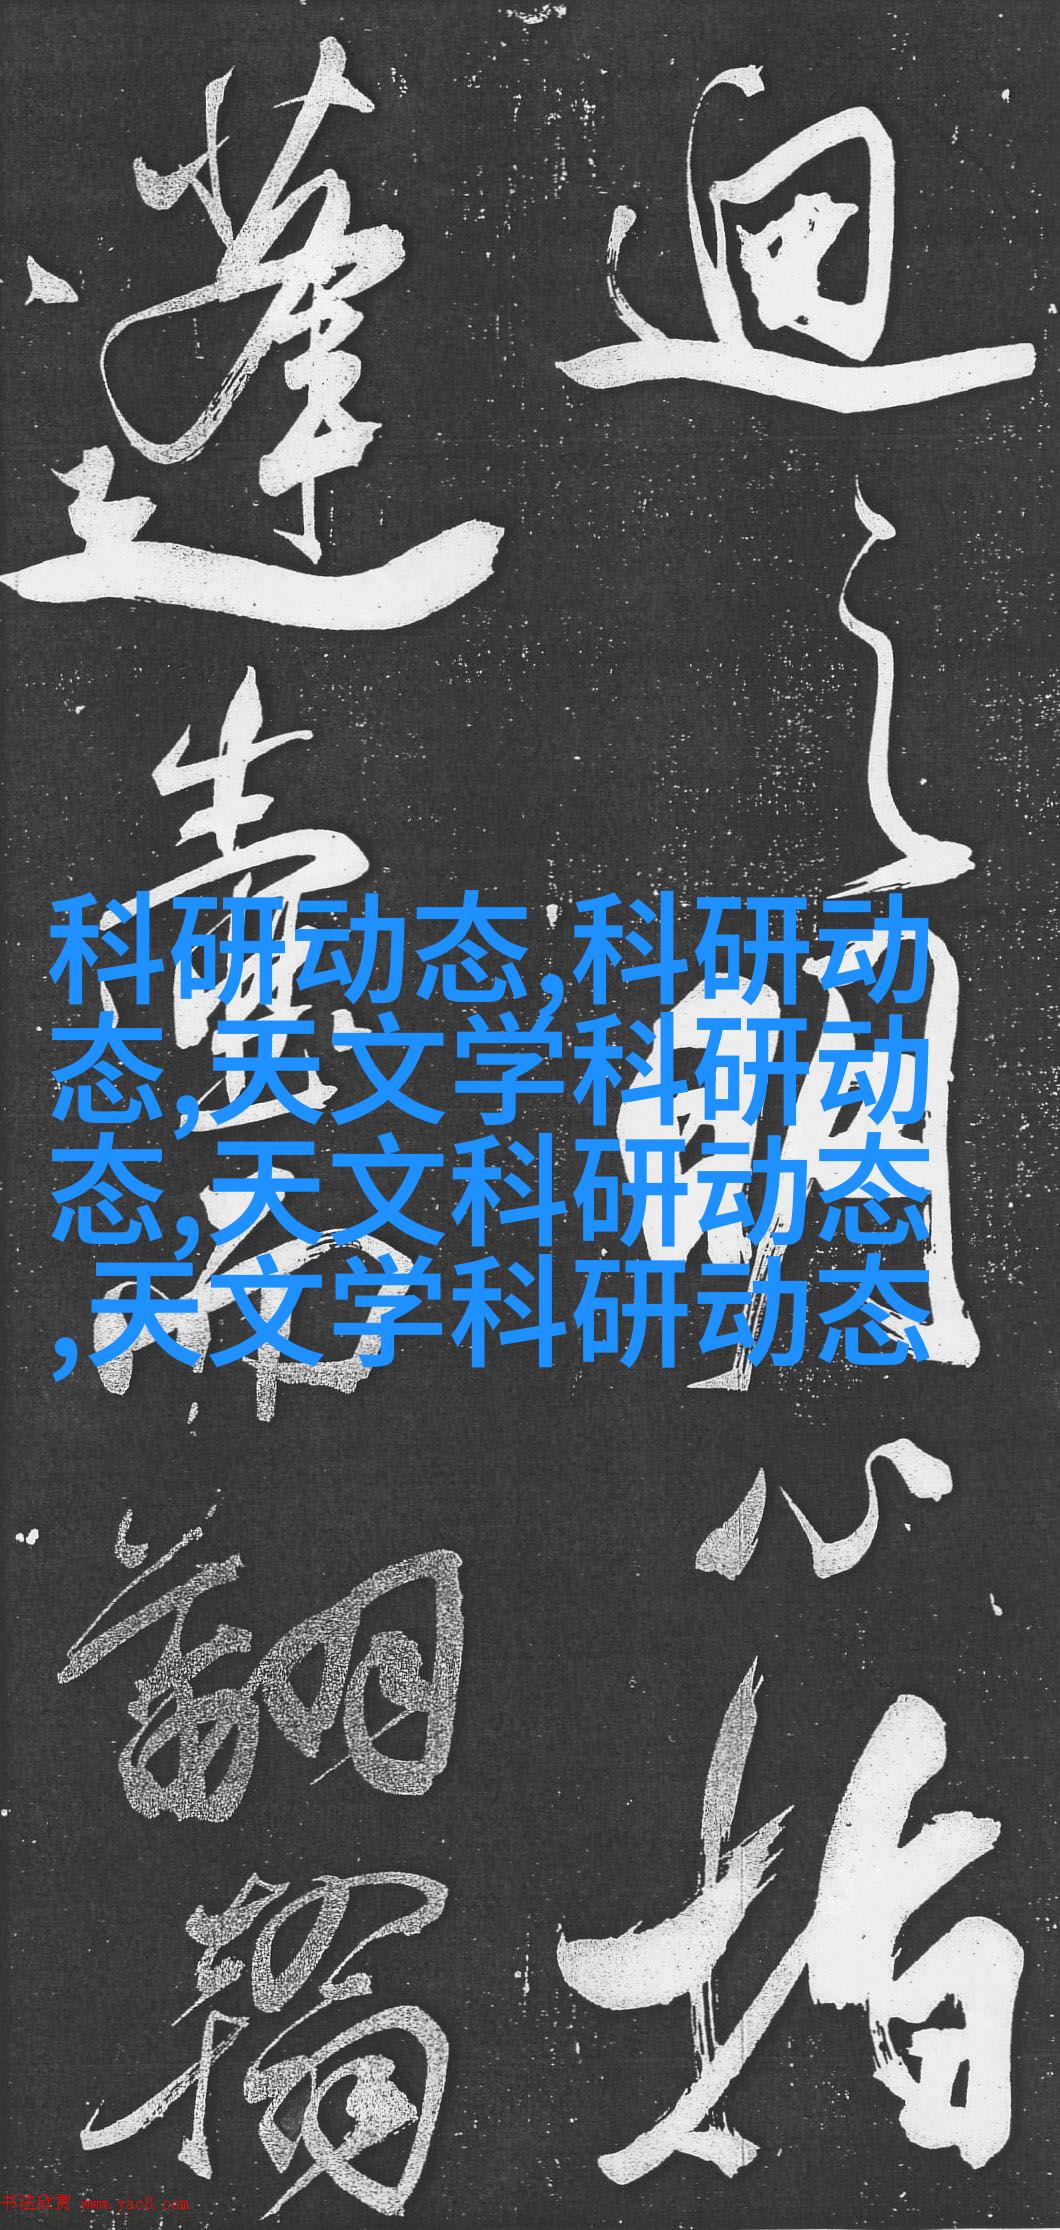 迴
之
指
蓬
翻
科研动态,科研动
态,天文学科研动
态,天文科研动态
,天文学科研动态
书法欣赏 www.yac8.com